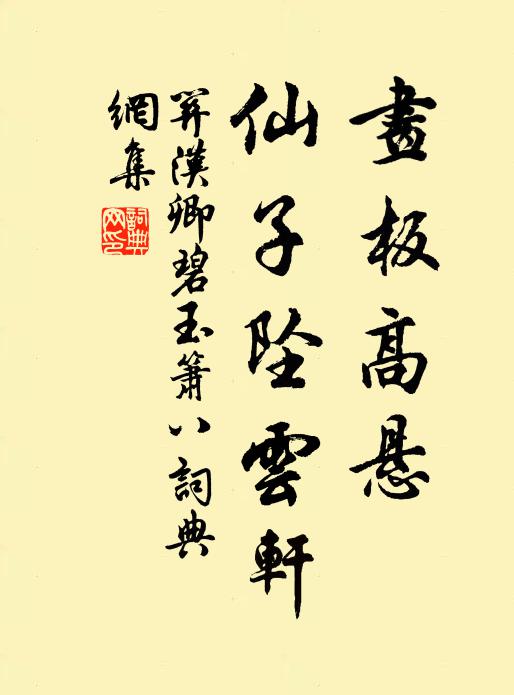 畫板高懸
仙子墜雲軒
關漢卿碧玉簫八詞典
網集
詞典網印